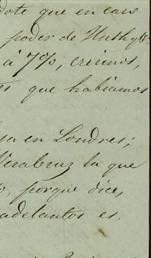 dote que en caso
poder de Huth y Cª
à 7%, creimos,
es que habiamos
sa en Londres;
Veracruz la que
, porque dice,
adelantos es